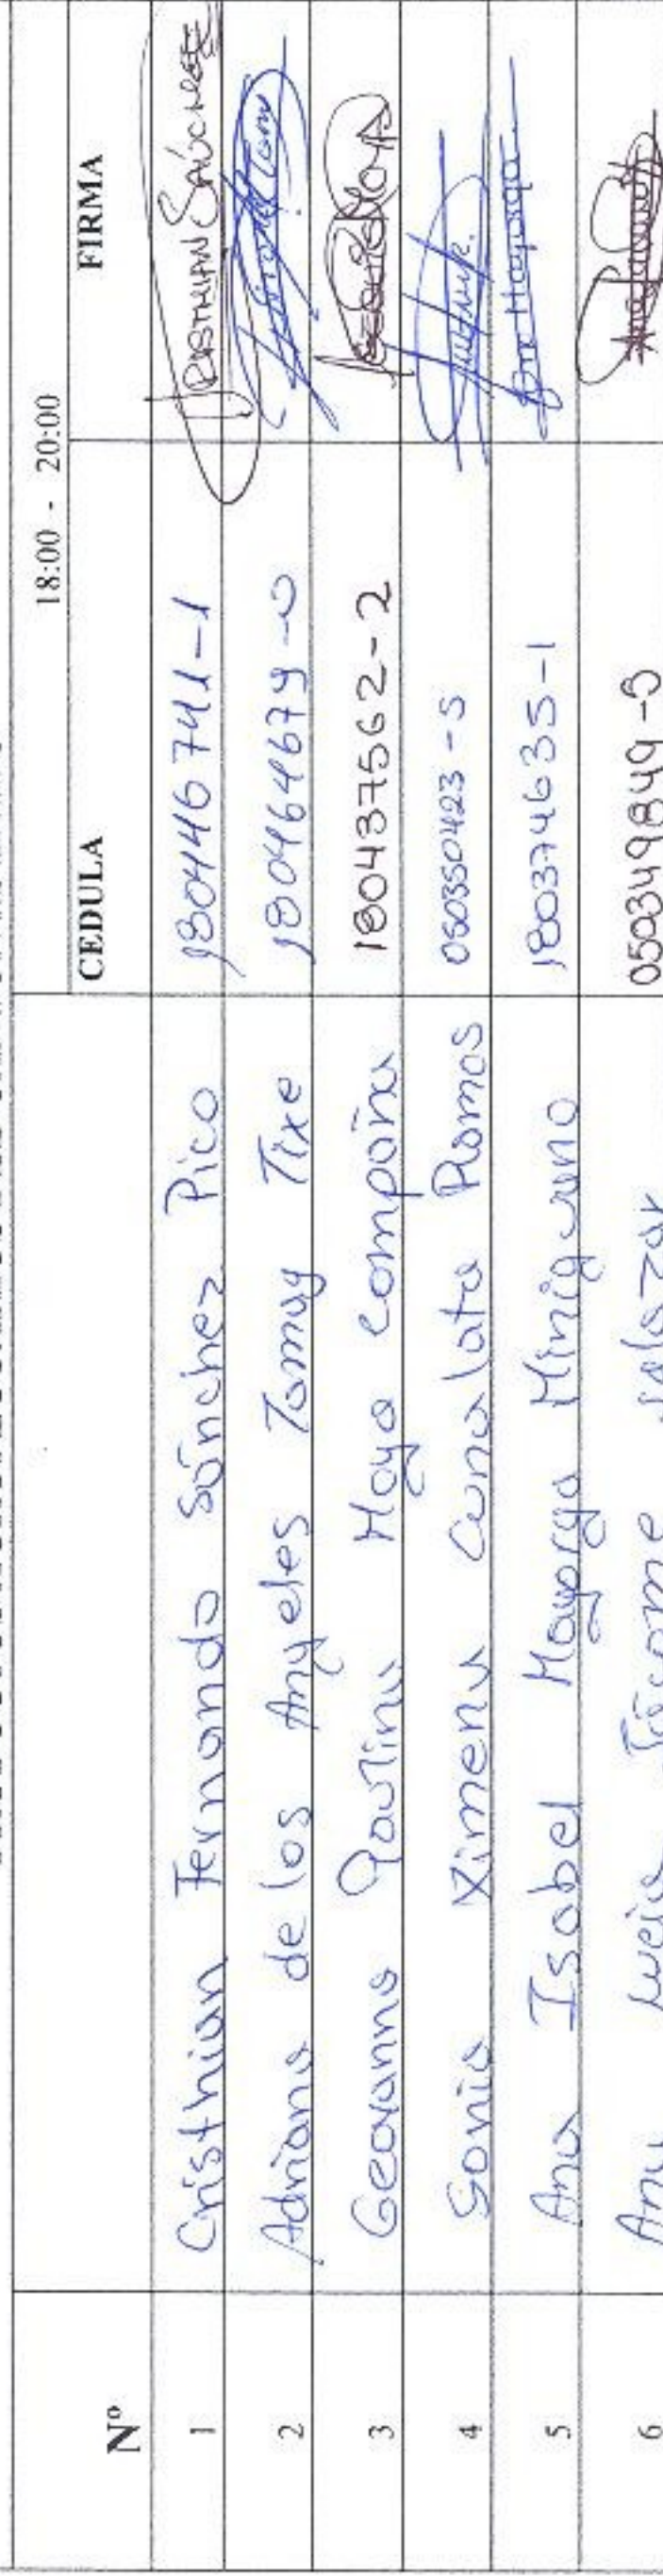 18:00 - 20:00
Nº CEDULA FIRMA
1 Cristhian Fernando Sánchez Pico 180446741-1 CRISTHIAN SÁNCHEZ
2 Adriana de los Angeles Tamay Tixe 180464679-0
3 Geovanna Paulina Moya Compaña 180437562-2
4 Sonia Ximena Cunalata Ramos 050350423-5
5 Ana Isabel Mayorga Miniguano 180374635-1 Ana Mayorga
6 Ana Lucia Jácome Salazar 050349849-5